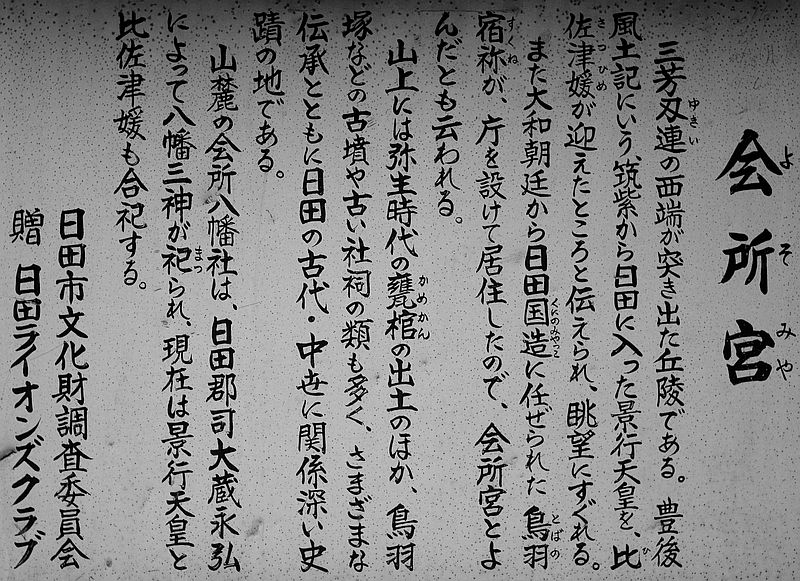 よそみや
会所宮
ゆきい
三芳刃連の西端が突き出た丘陵である。豊後
ひ
風土記にいう、筑紫から日田に入った景行天皇を、比
さつひめ
佐津媛が迎えたところと伝えられ、眺望にすぐれる。
くにのみやつこ とばの
また大和朝廷から日田国造に任ぜられた鳥羽
すくね
宿祢が、庁を設けて居住したので、会所宮とよ
んだとも云われる。
かめかん
山上には弥生時代の甕棺の出土のほか、鳥羽
塚などの古墳や古い社祠の類も多く、さまざまな
伝承とともに日田の古代・中世に関係深い史
蹟の地である。
山麓の会所八幡社は、日田郡司大蔵永弘
まつ
によって八幡三神が祀られ、現在は景行天皇と
比佐津媛も合祀する。
日田市文化財調査委員会
贈 日田ライオンズクラブ